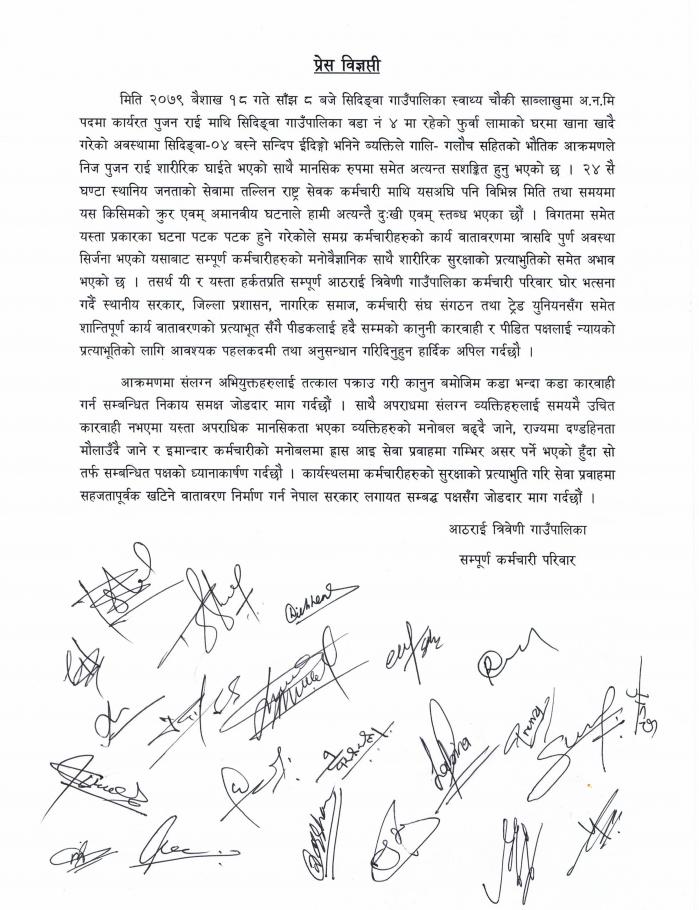 प्रेस विज्ञप्ती
मिति २०७९ बैशाख १८ गते साँझ ८ बजे सिदिङ्वा गाउँपालिका स्वाथ्य चौकी साब्लाखुमा अ.न.मि
पदमा कार्यरत पुजन राई माथि सिदिङ्वा गाउँपालिका वडा नं ४ मा रहेको फुर्वा लामाको घरमा खाना खादै
गरेको अवस्थामा सिदिङ्वा-०४ वस्ने सन्दिप ईदिङ्गो भनिने ब्यक्तिले गालि- गलौच सहितको भौतिक आक्रमणले
निज पुजन राई शारीरिक घाईते भएको साथै मानसिक रुपमा समेत अत्यन्त सशङ्कित हुनु भएको छ । २४ सै
घण्टा स्थानिय जनताको सेवामा तल्लिन राष्ट्र सेवक कर्मचारी माथि यसअघि पनि विभिन्न मिति तथा समयमा
यस किसिमको क्रुर एवम् अमानवीय घटनाले हामी अत्यन्तै दुःखी एवम् स्तब्ध भएका छौं । विगतमा समेत
यस्ता प्रकारका घटना पटक पटक हुने गरेकोले समग्र कर्मचारीहरुको कार्य वातावरणमा त्रासदि पुर्ण अवस्था
सिर्जना भएको यसाबाट सम्पूर्ण कर्मचारीहरुको मनोबैज्ञानिक साथै शारीरिक सुरक्षाको प्रत्याभुतिको समेत अभाव
भएको छ । तसर्थ यी र यस्ता हर्कतप्रति सम्पूर्ण आठराई त्रिवेणी गाउँपालिका कर्मचारी परिवार घोर भत्सना
गर्दै स्थानीय सरकार, जिल्ला प्रशासन, नागरिक समाज, कर्मचारी संघ संगठन तथा ट्रेड युनियनसँग समेत
शान्तिपूर्ण कार्य वातावरणको प्रत्याभूत सँगै पीडकलाई हदै सम्मको कानुनी कारवाही र पीडित पक्षलाई न्यायको
प्रत्याभूतिको लागि आवश्यक पहलकदमी तथा अनुसन्धान गरिदिनुहुन हार्दिक अपिल गर्दछौ ।
आक्रमणमा संलग्न अभियुक्तहरुलाई तत्काल पक्राउ गरी कानुन बमोजिम कडा भन्दा कडा कारवाही
गर्न सम्बन्धित निकाय समक्ष जोडदार माग गर्दछौं । साथै अपराधमा संलग्न व्यक्तिहरुलाई समयमै उचित
कारवाही नभएमा यस्ता अपराधिक मानसिकता भएका व्यक्तिहरुको मनोबल बढ्दै जाने, राज्यमा दण्डहिनता
मौलाउँदै जाने र इमान्दार कर्मचारीको मनोबलमा ह्रास आइ सेवा प्रवाहमा गम्भिर असर पर्ने भएको हुँदा सो
तर्फ सम्बन्धित पक्षको ध्यानाकार्षण गर्दछौं । कार्यस्थलमा कर्मचारीहरुको सुरक्षाको प्रत्याभुति गरि सेवा प्रवाहमा
सहजतापूर्वक खटिने वातावरण निर्माण गर्न नेपाल सरकार लगायत सम्बद्ध पक्षसँग जोडदार माग गर्दछौं ।
आठराई त्रिवेणी गाउँपालिका
सम्पूर्ण कर्मचारी परिवार